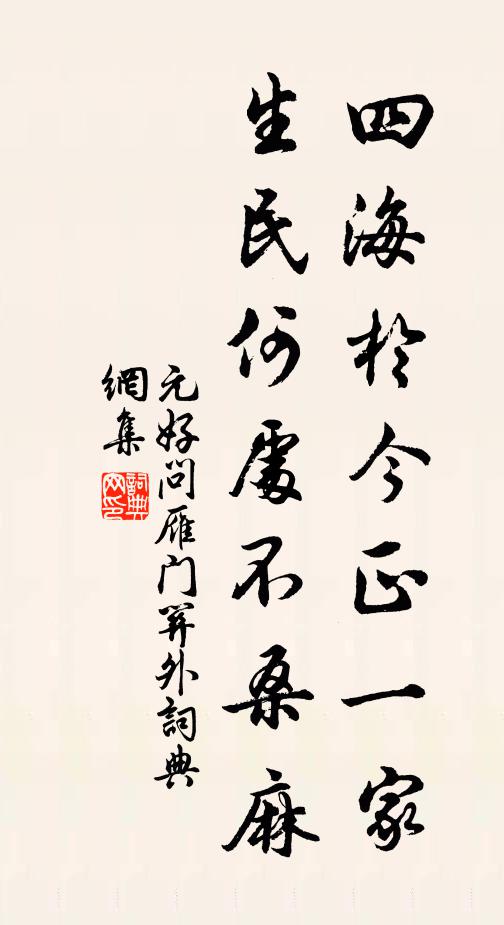 四海於今正一家
生民何處不桑麻
元好問雁门關外詞典
網集
詞典
网印